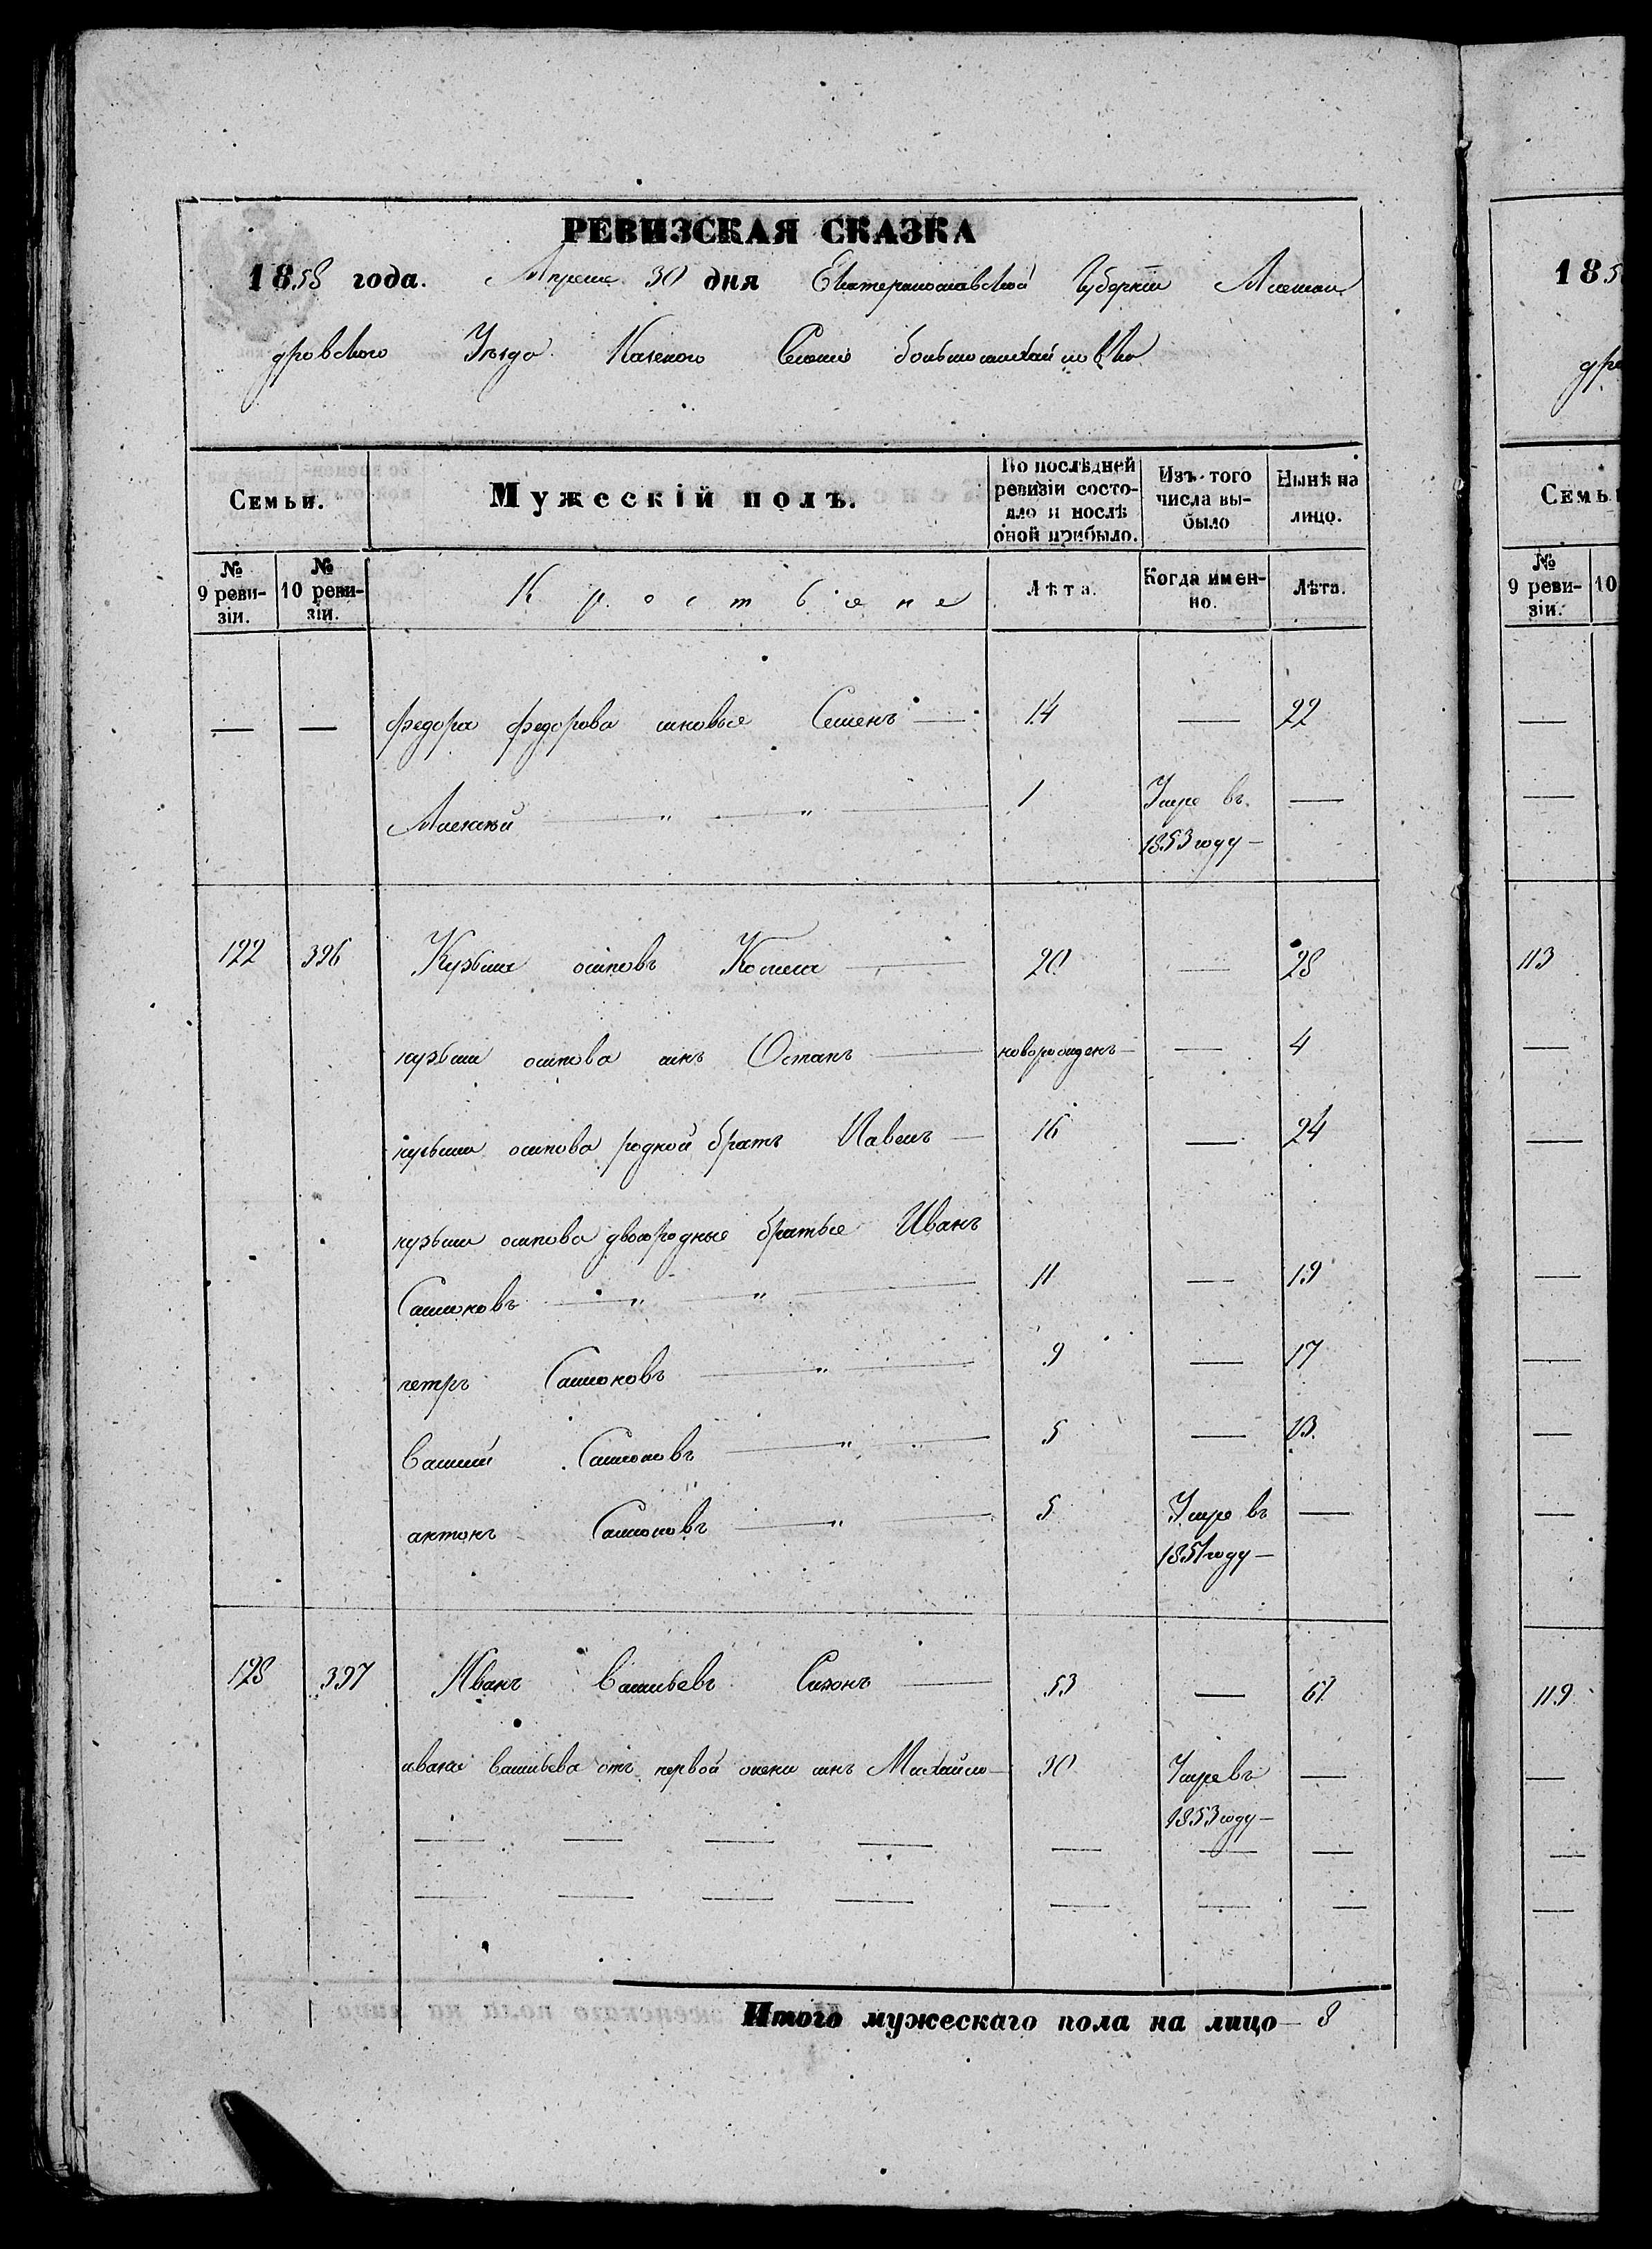 РЕВИЗСКАЯ СКАЗКА
1858 года. Апреля 30 дня Екатеринославской Губерніи Алексан
дровского Уезда Казеного Селенія большомихайловки
Семьи. Мужескій полъ. По послѣдней ревизіи состояло и послѣ оной прибыло. Изъ того числа выбыло Нынѣ на лицо.
№ 9 ревизіи. № 10 ревизіи. Крестьяне Лѣта. Когда именно. Лѣта.
— — федора федорова сыновье Семенъ — 14 — 22
Алексѣй — „ — „ — 1 Умре въ —
1853 году —
122 396 Кузьма осиповъ — 20 — 28
кузьмы осипова сынъ Остапъ — новорожденъ — — 4
кузьмы осипова родной братъ Павелъ — 16 — 24
кузьмы осипова двоюродные братье Иванъ
Самсоновъ — „ — „ — 11 — 19
петръ Самсоновъ — „ — 9 — 17
василій Самсоновъ — „ — 5 — 13
антонъ Самсоновъ — „ — 5 Умре въ —
1851 году —
123 397 Иванъ васильевъ — 53 — 61
ивана васильева отъ первой жены сынъ Михайло — 30 Умре въ —
1853 году —
— — — — — — —
— — — — — — —
Итого мужескаго пола на лицо — 8
185
дро
Семьи
№ 9 ревизіи. 10
113
119